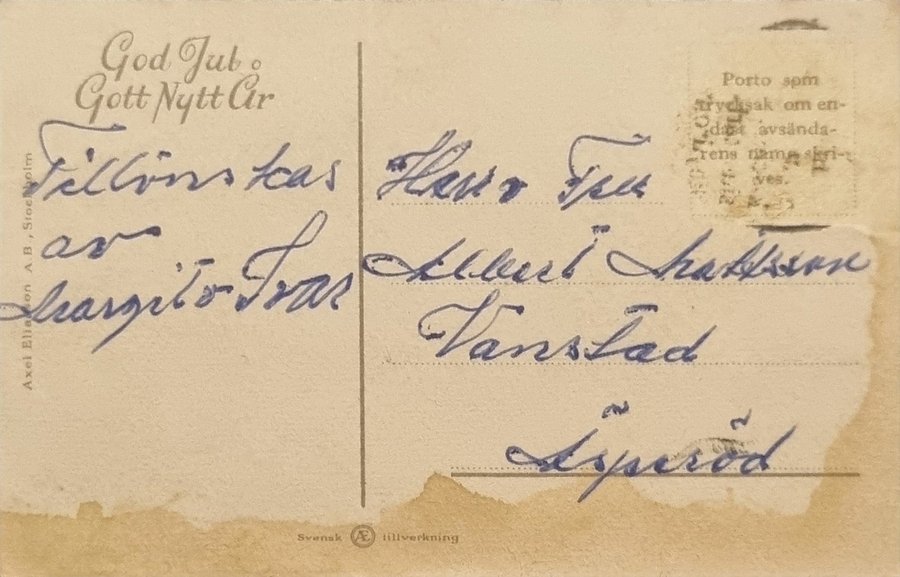 God Jul o
Gott Nytt År
Tillönskas
av
Margit o Ivar
Axel Eliasson A B, Stockholm
Porto som
trycksak om en-
dast avsända-
rens namn skri-
ves.
Herr o Fru
Albert Mattsson
Vanstad
Äsperöd
Svensk Æ tillverkning